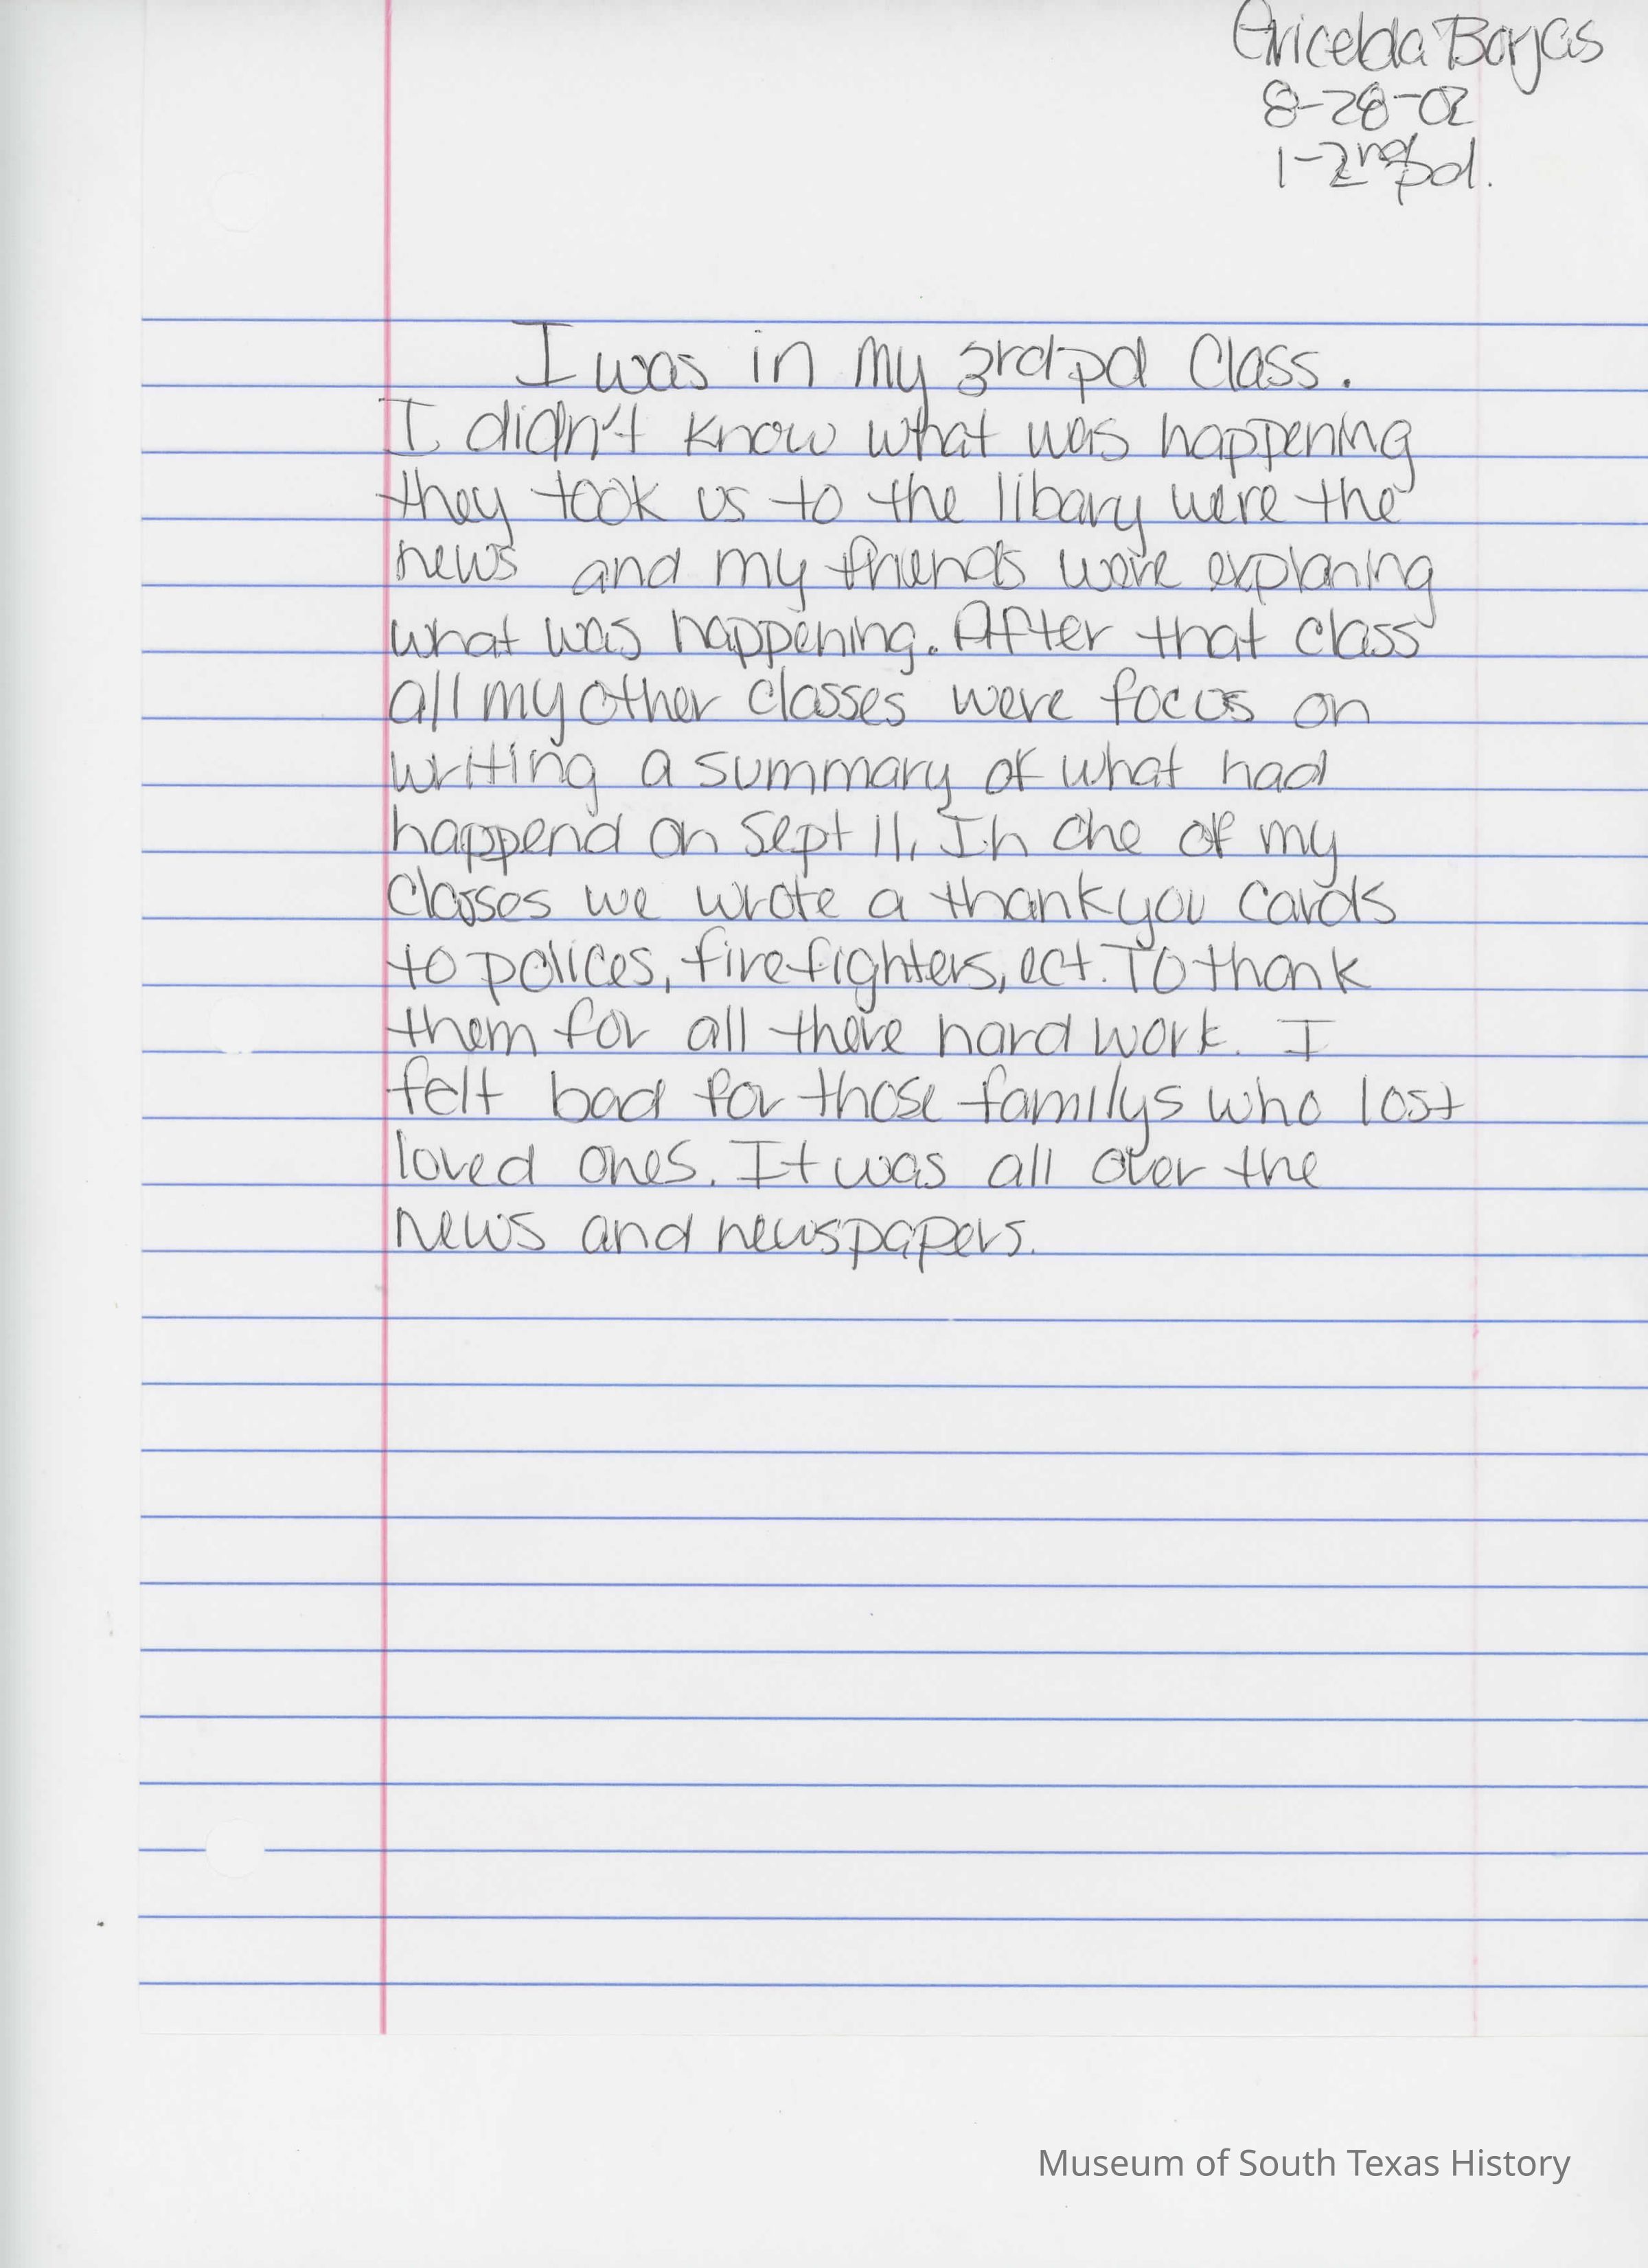 Ericelda Borjas
8-28-02
1-2nd pd.
I was in my 3rd pd Class.
I didn't know what was happening
they took us to the libary were the
news and my friends were explaning
what was happening. After that class
all my other classes were focus on
writing a summary of what had
happend on Sept 11, In one of my
Classes we wrote a thank you cards
to polices, firefighters, ect. To thank
them for all there hard work. I
felt bad for those familys who lost
loved ones. It was all over the
news and newspapers.
Museum of South Texas History